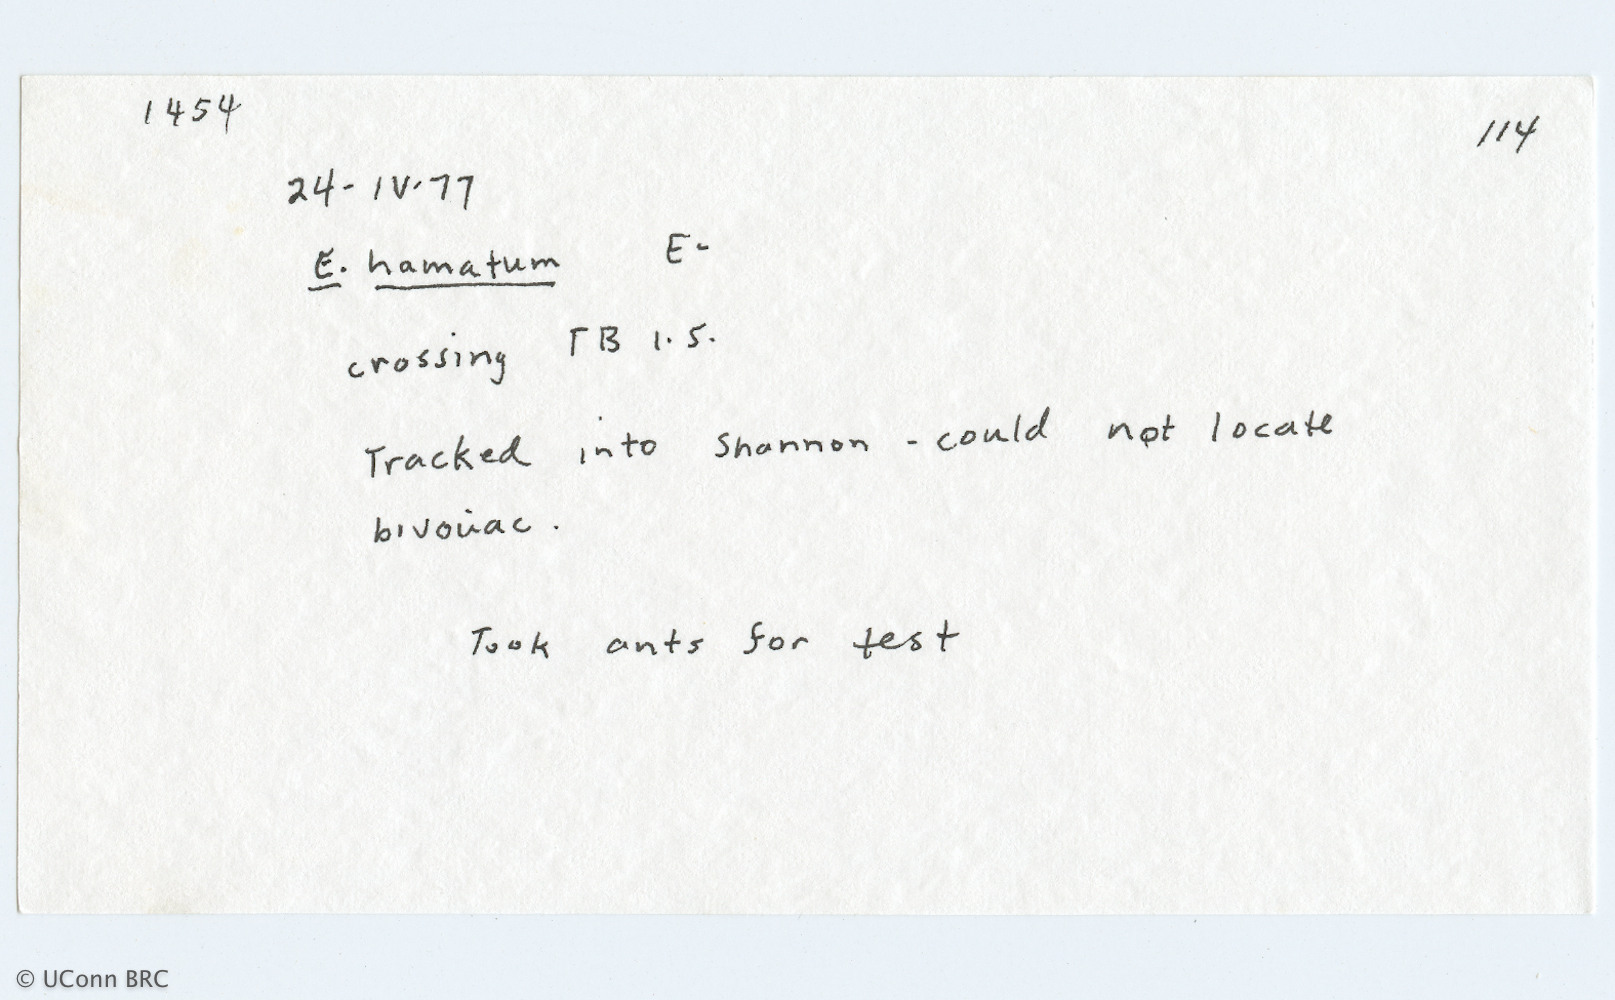 1454
114
24-IV-77
E. hamatum E-
crossing TB 1.5.
Tracked into Shannon - could not locate
bivouac.
Took ants for test
© UConn BRC